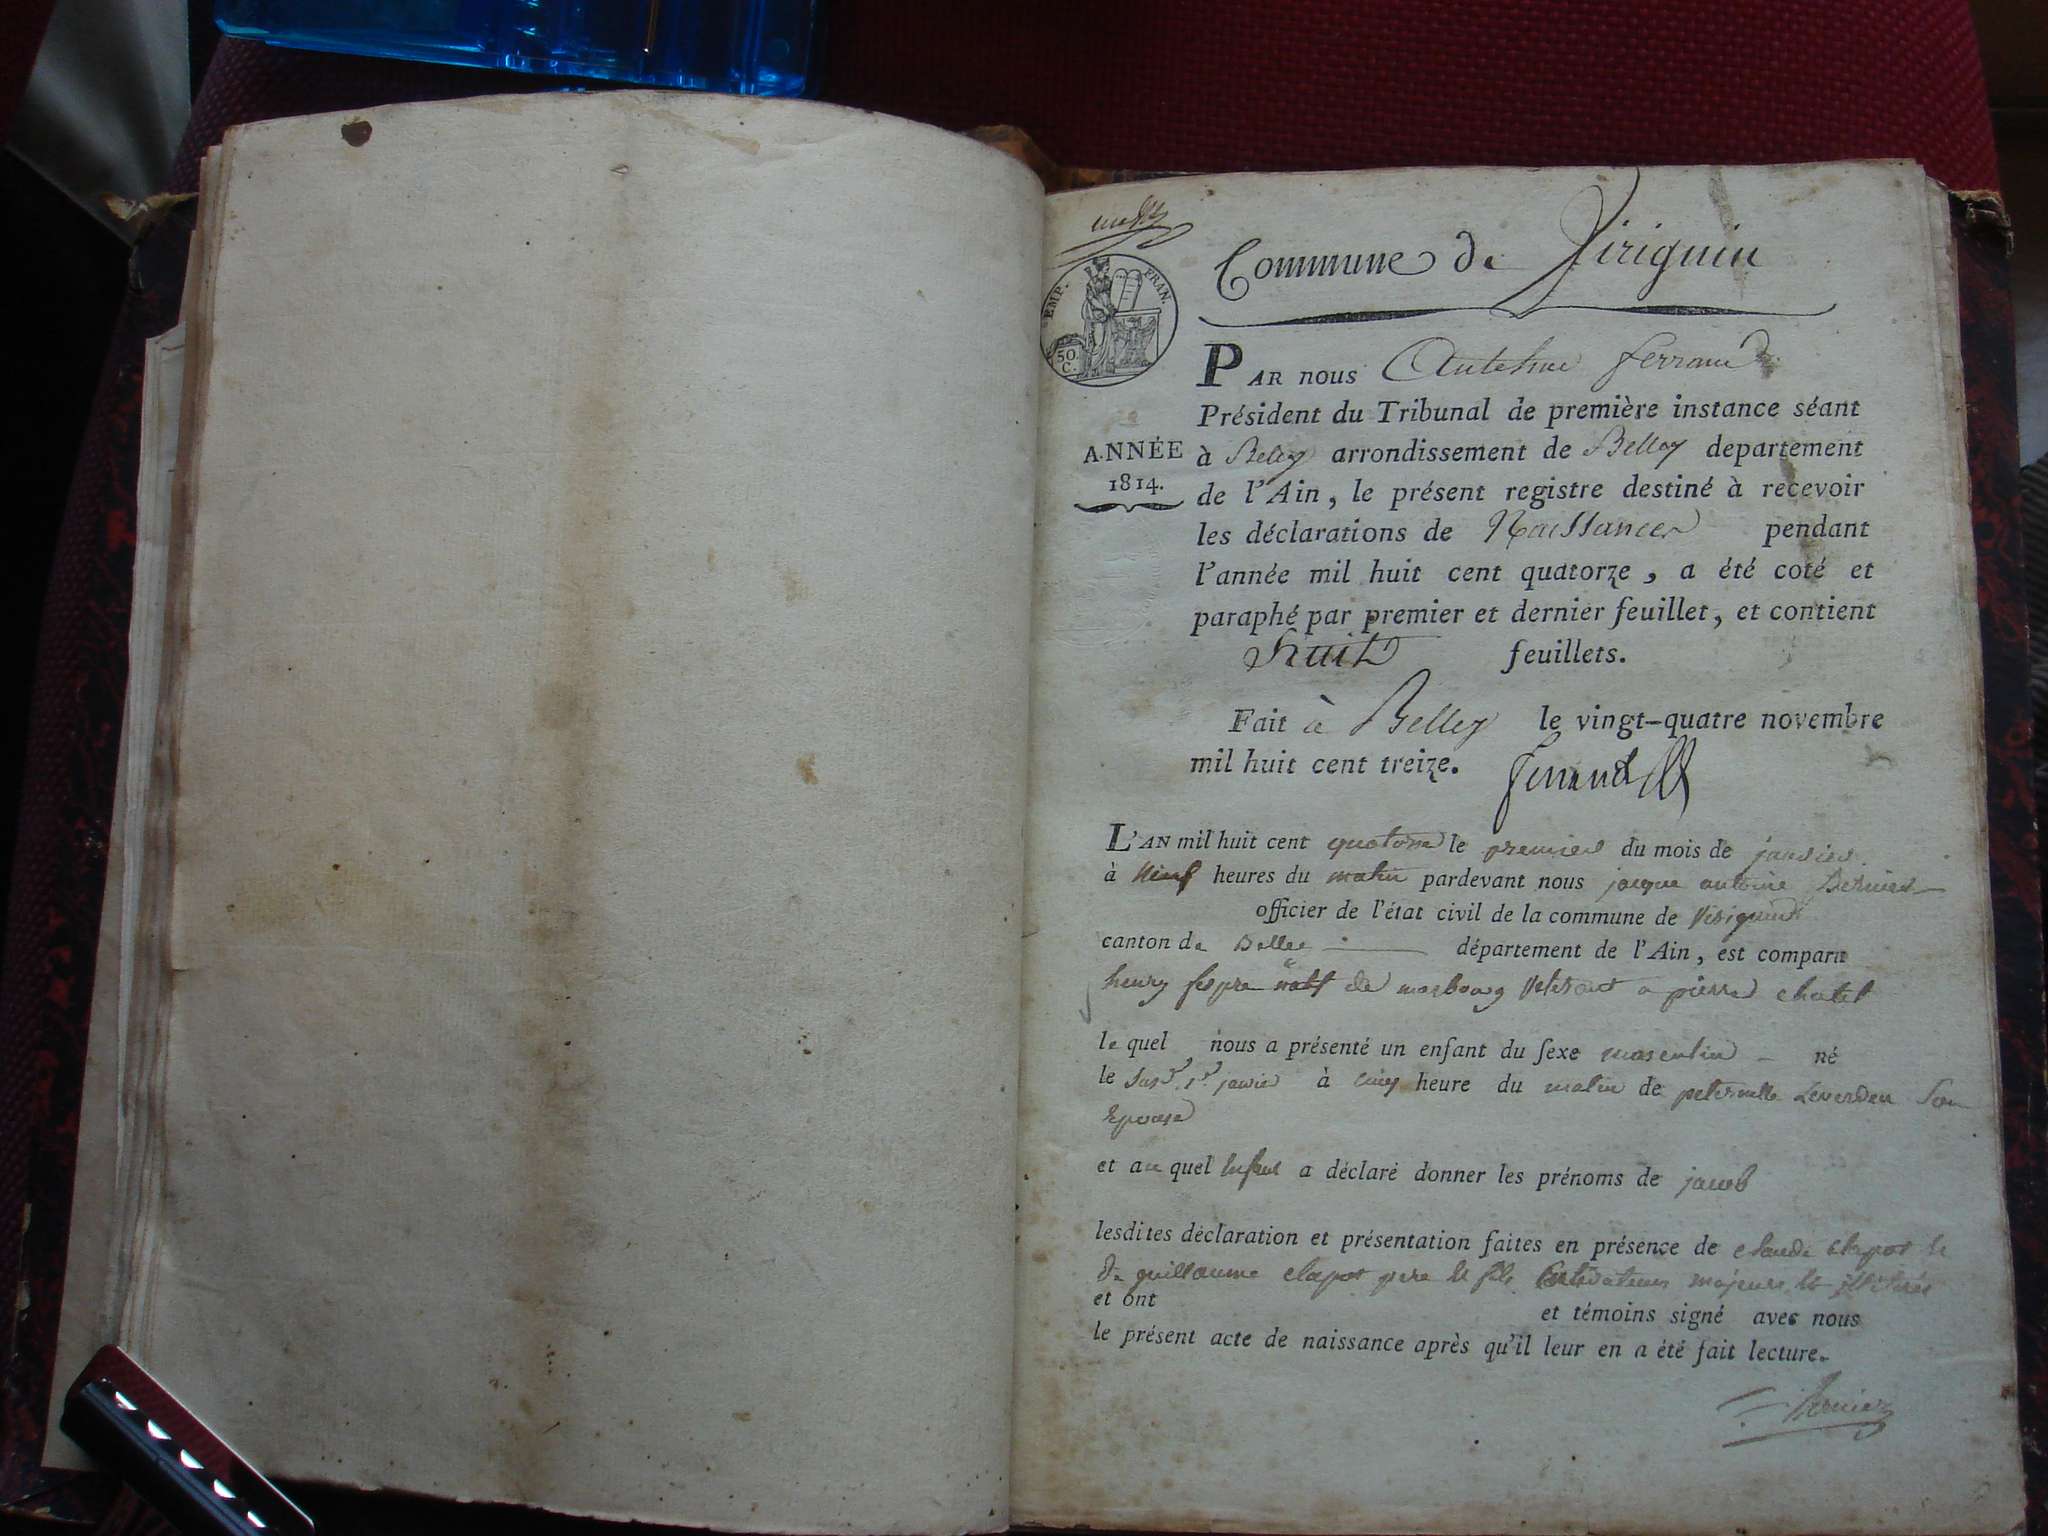 Commune de Viriguin
EMP. FRAN.
50.
C.
PAR nous Anthelme ferrand
Président du Tribunal de première instance séant
ANNÉE
1814.
à Beley arrondissement de Belley departement
de l'Ain, le présent registre destiné à recevoir
les déclarations de Naissances pendant
l'année mil huit cent quatorze, a été coté et
paraphé par premier et dernier feuillet, et contient
huit feuillets.
Fait à Belley le vingt-quatre novembre
mil huit cent treize. ferrand
L'AN mil huit cent quatorze le premier du mois de janvier
à Neuf heures du matin pardevant nous jacque antoine Bernier
officier de l'état civil de la commune de Virignin
canton de Belley département de l'Ain, est comparu
henry natif de veteran a pierre chatel
le quel nous a présenté un enfant du sexe masculin né
le susd. 1er janvier à cinq heure du matin de peternelle Leverden Son
Epouse
et au quel Enfant a déclaré donner les prénoms de jacob
lesdites déclaration et présentation faites en présence de claude clapot et
de guillaume clapot pere et fils Cultivateurs majeurs et illitérés
et ont et témoins signé avec nous
le présent acte de naissance après qu'il leur en a été fait lecture.
Bernier